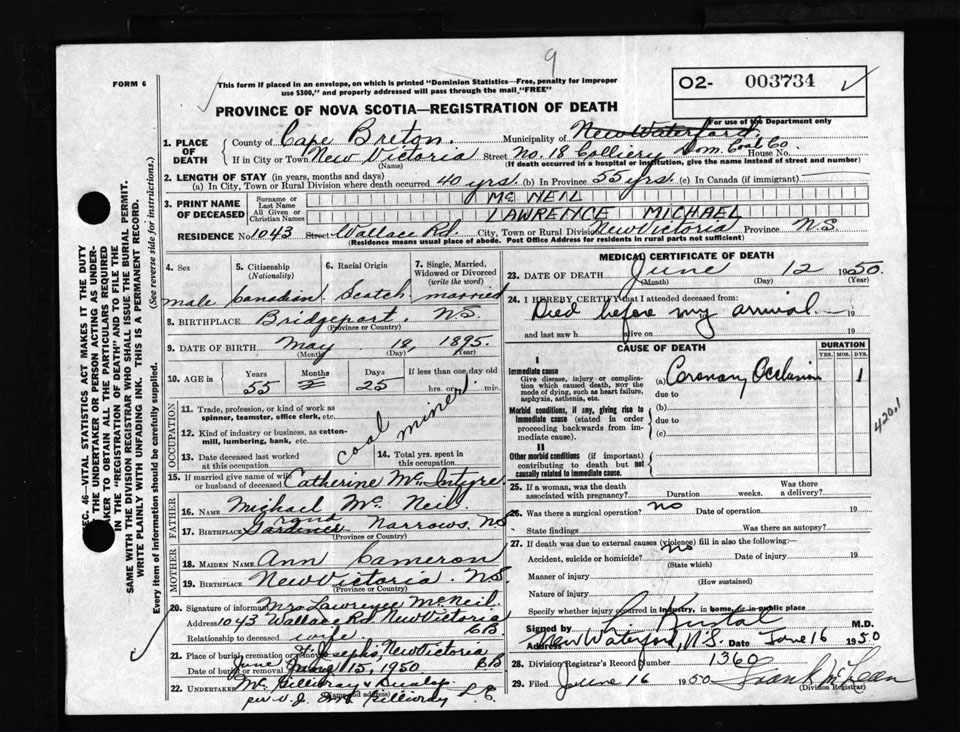 9
FORM 6
This form if placed in an envelope, on which is printed "Dominion Statistics—Free, penalty for improper
use $300," and properly addressed will pass through the mail "FREE"
O2- 003734
For use of the Department only
PROVINCE OF NOVA SCOTIA—REGISTRATION OF DEATH
1. PLACE OF DEATH
County of Cape Breton. Municipality of New Waterford.
If in City or Town New Victoria Street No. 18 Colliery Dom. Coal Co House No.
(Name) (If death occurred in a hospital or institution, give the name instead of street and number)
2. LENGTH OF STAY (in years, months and days)
(a) In City, Town or Rural Division where death occurred 40 yrs. (b) In Province 55 yrs. (c) In Canada (if immigrant)
3. PRINT NAME OF DECEASED
Surname or Last Name MC NEIL
All Given or Christian Names LAWRENCE MICHAEL
RESIDENCE No. 1043 Street Wallace Rd. City, Town or Rural Division New Victoria Province N.S.
(Residence means usual place of abode. Post Office Address for residents in rural parts not sufficient)
4. Sex
male
5. Citizenship
(Nationality)
Canadian
6. Racial Origin
Scotch
7. Single, Married,
Widowed or Divorced
(write the word)
married
8. BIRTHPLACE Bridgeport, N.S.
(Province or Country)
9. DATE OF BIRTH May 18, 1895.
(Month) (Day) (Year)
10. AGE in Years Months Days If less than one day old
55 25 hrs. or min.
OCCUPATION
11. Trade, profession, or kind of work as
spinner, teamster, office clerk, etc.
12. Kind of industry or business, as cotton-
mill, lumbering, bank, etc.
coal miner.
13. Date deceased last worked
at this occupation
14. Total yrs. spent in
this occupation
15. If married give name of wife
or husband of deceased Catherine McIntyre
FATHER
16. Name Michael McNeil
17. Birthplace Grand Narrows NS
(Province or Country)
MOTHER
18. Maiden Name Ann Cameron
19. Birthplace New Victoria. N.S.
(Province or Country)
20. Signature of informant Mrs Lawrence McNeil.
Address 1043 Wallace Rd. New Victoria CB
Relationship to deceased wife
21. Place of burial, cremation or removal St Josephs, New Victoria
Date of burial or removal June 15, 1950 CB
22. Undertaker McGillivray & Dunlap
(Name and address)
per V. J. McGillivray L.E.
MEDICAL CERTIFICATE OF DEATH
23. DATE OF DEATH June 12 1950.
(Month) (Day) (Year)
24. I HEREBY CERTIFY that I attended deceased from:
Died before my arrival. 19
and last saw h alive on 19
CAUSE OF DEATH
DURATION
YRS. MOS. DYS.
I
Immediate cause
Give disease, injury or complica-
tion which caused death, NOT the
mode of dying, such as heart failure,
asphyxia, asthenia, etc.
(a) Coronary Occlusion 1
due to
Morbid conditions, if any, giving rise to
immediate cause (stated in order
proceeding backwards from im-
mediate cause).
(b)
due to
(c)
420.1
II
Other morbid conditions (if important)
contributing to death but not
causally related to immediate cause.
25. If a woman, was the death
associated with pregnancy? Duration weeks. Was there
a delivery?
26. Was there a surgical operation? no Date of operation 19
State findings Was there an autopsy?
27. If death was due to external causes (violence) fill in also the following:
no
Accident, suicide or homicide? Date of injury 19
(State which)
Manner of injury
(How sustained)
Nature of injury
Specify whether injury occurred in industry, in home, or in public place
Signed by M.D.
Address New Waterford, N.S. Date June 16 1950
28. Division Registrar's Record Number 1360
29. Filed June 16 1950 Frank McLean
(Division Registrar)
SEC. 46—VITAL STATISTICS ACT MAKES IT THE DUTY
OF THE UNDERTAKER OR PERSON ACTING AS UNDER-
TAKER TO OBTAIN ALL THE PARTICULARS REQUIRED
IN THE "REGISTRATION OF DEATH" AND TO FILE THE
SAME WITH THE DIVISION REGISTRAR WHO SHALL ISSUE THE BURIAL PERMIT.
WRITE PLAINLY WITH UNFADING INK. THIS IS A PERMANENT RECORD.
Every item of information should be carefully supplied. (See reverse side for instructions.)